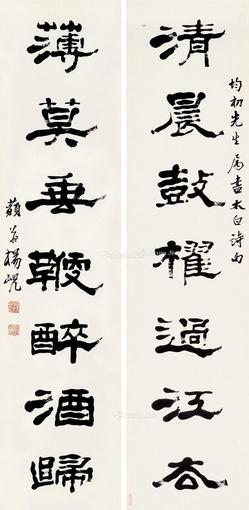 均初先生属書太白詩句
清晨鼓櫂過江去
薄莫垂鞭醉酒歸
藐翁楊峴